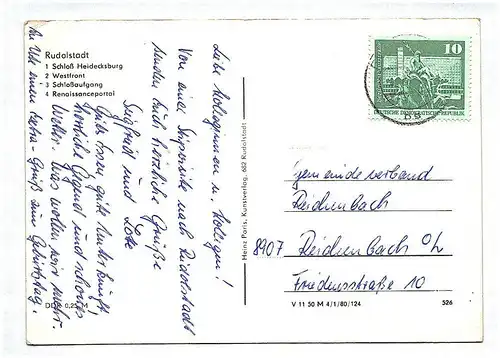 Rudolstadt
1 Schloß Heidecksburg
2 Westfront
3 Schloßaufgang
4 Renaissanceportal
Liebe Kolleginnen u. Kollegen!
Von einer Stippvisite nach Rudolstadt
senden Euch herzliche Grüße
Siegfried und Lotte
Gutes Essen, gute Unterkunft!
Herrliche Gegend und schönes
Wetter. Was wollen wir mehr.
An Uli einen Extra-Gruß zum Geburtstag.
DDR 0,25 M
Heinz Paris, Kunstverlag, 682 Rudolstadt
10
DEUTSCHE DEMOKRATISCHE REPUBLIK
Gemeindeverband
Reichenbach
8907 Reichenbach O/L
Friedensstraße 10
V 11 50 M 4/1/80/124
526